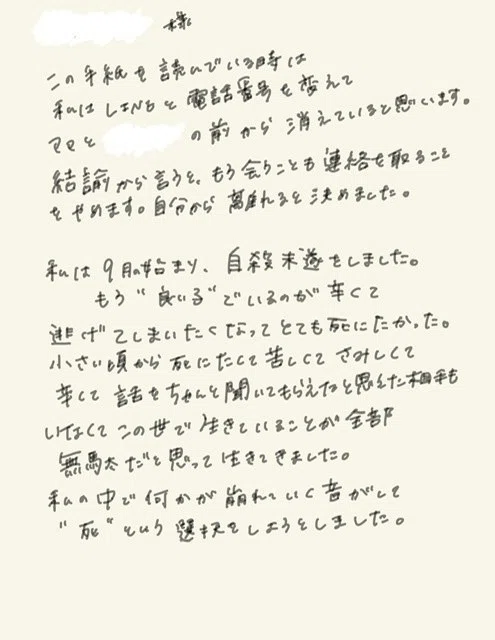 様
この手紙を読んでいる時は
私はLINEと電話番号を変えて
ママと の前から消えていると思います。
結論から言うと、もう会うことも連絡を取ること
をやめます。自分から離れると決めました。
私は9月の始まり、自殺未遂をしました。
もう"良い子"でいるのが辛くて
逃げてしまいたくなってとても死にたかった。
小さい頃から死にたくて苦しくてさみしくて
辛くて話をちゃんと聞いてもらえたと思えた相手も
いなくてこの世で生きていることが全部
無駄だと思って生きてきました。
私の中で何かが崩れていく音がして
"死"という選択をしようとしました。